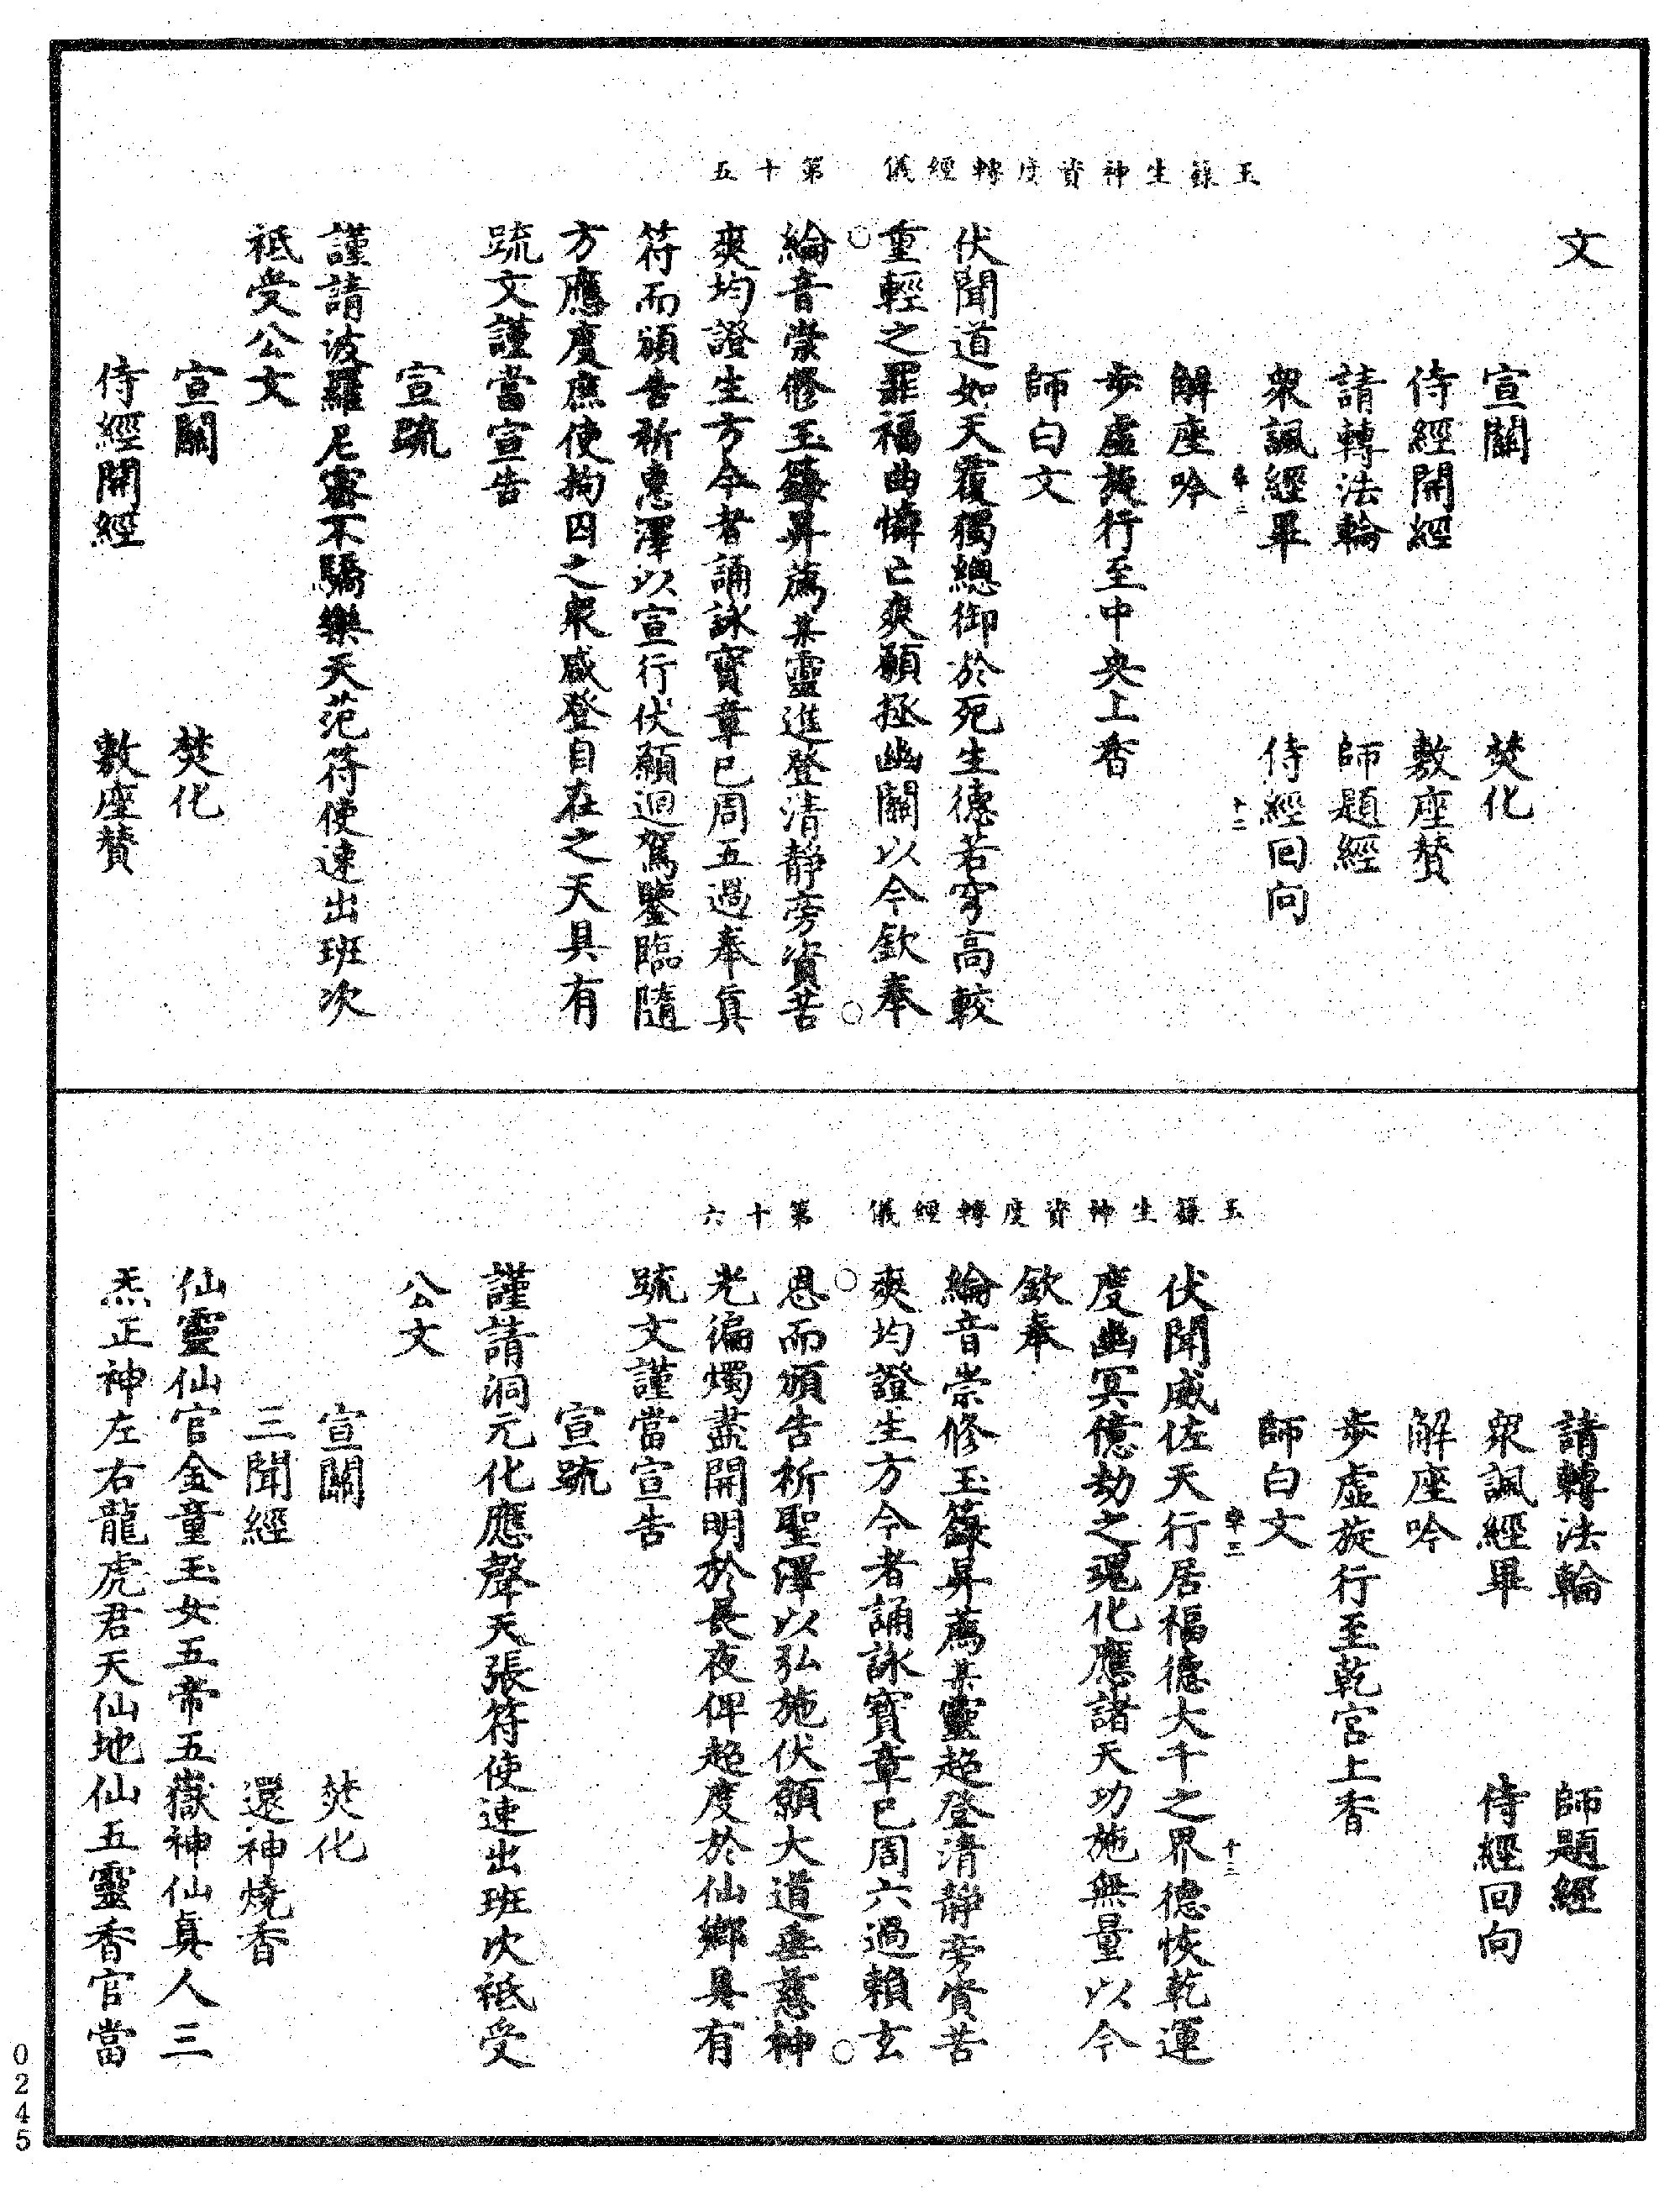 玉籙生神資度轉經儀　第十五
文
宣關　焚化
侍經開經　敷座贊
請轉法輪　師題經
衆諷經畢　侍經回向
解座吟
步虛旋行至中央上香
師白文
伏聞道如天覆獨總御於死生德若穹高較
重輕之罪福曲憐亡爽願拯幽關以今欽奉
綸音崇修玉籙昇薦某靈進登清靜旁資苦
爽均證生方今者誦詠寶章已周五過奉眞
符而頒告祈惠澤以宣行伏願迴駕鑒臨隨
方應度庶使拘囚之衆咸登自在之天具有
疏文謹當宣告
宣疏
謹請波羅尼密不驕樂天范符使速出班次
祇受公文
宣關　焚化
侍經開經　敷座贊
玉籙生神資度轉經儀　第十六
請轉法輪　師題經
衆諷經畢　侍經回向
解座吟
步虛旋行至乾宮上香
師白文
十三
伏聞威佐天行居福德大千之界德恢乾運
度幽冥億劫之現化應諸天功施無量以今
欽奉
綸音崇修玉籙昇薦某靈超登清靜旁資苦
爽均證生方今者誦詠寶章已周六過賴玄
恩而頒告祈聖澤以弘施伏願大道垂慈神
光徧燭盡開明於長夜俾超度於仙鄉具有
疏文謹當宣告
宣疏
謹請洞元化應聲天張符使速出班次祇受
公文
宣關　焚化
三聞經　還神燒香
仙靈仙官金童玉女五帝五嶽神仙眞人三
炁正神左右龍虎君天仙地仙五靈香官當
0245